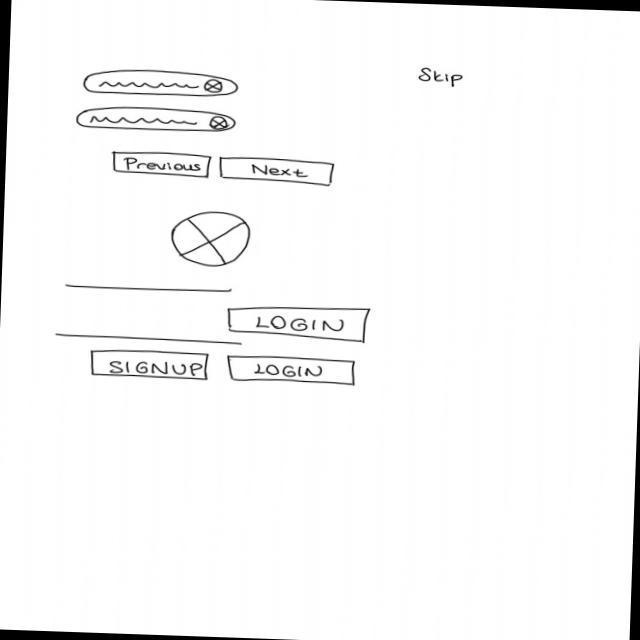 Skip
Previous Next
LOGIN
SIGNUP LOGIN